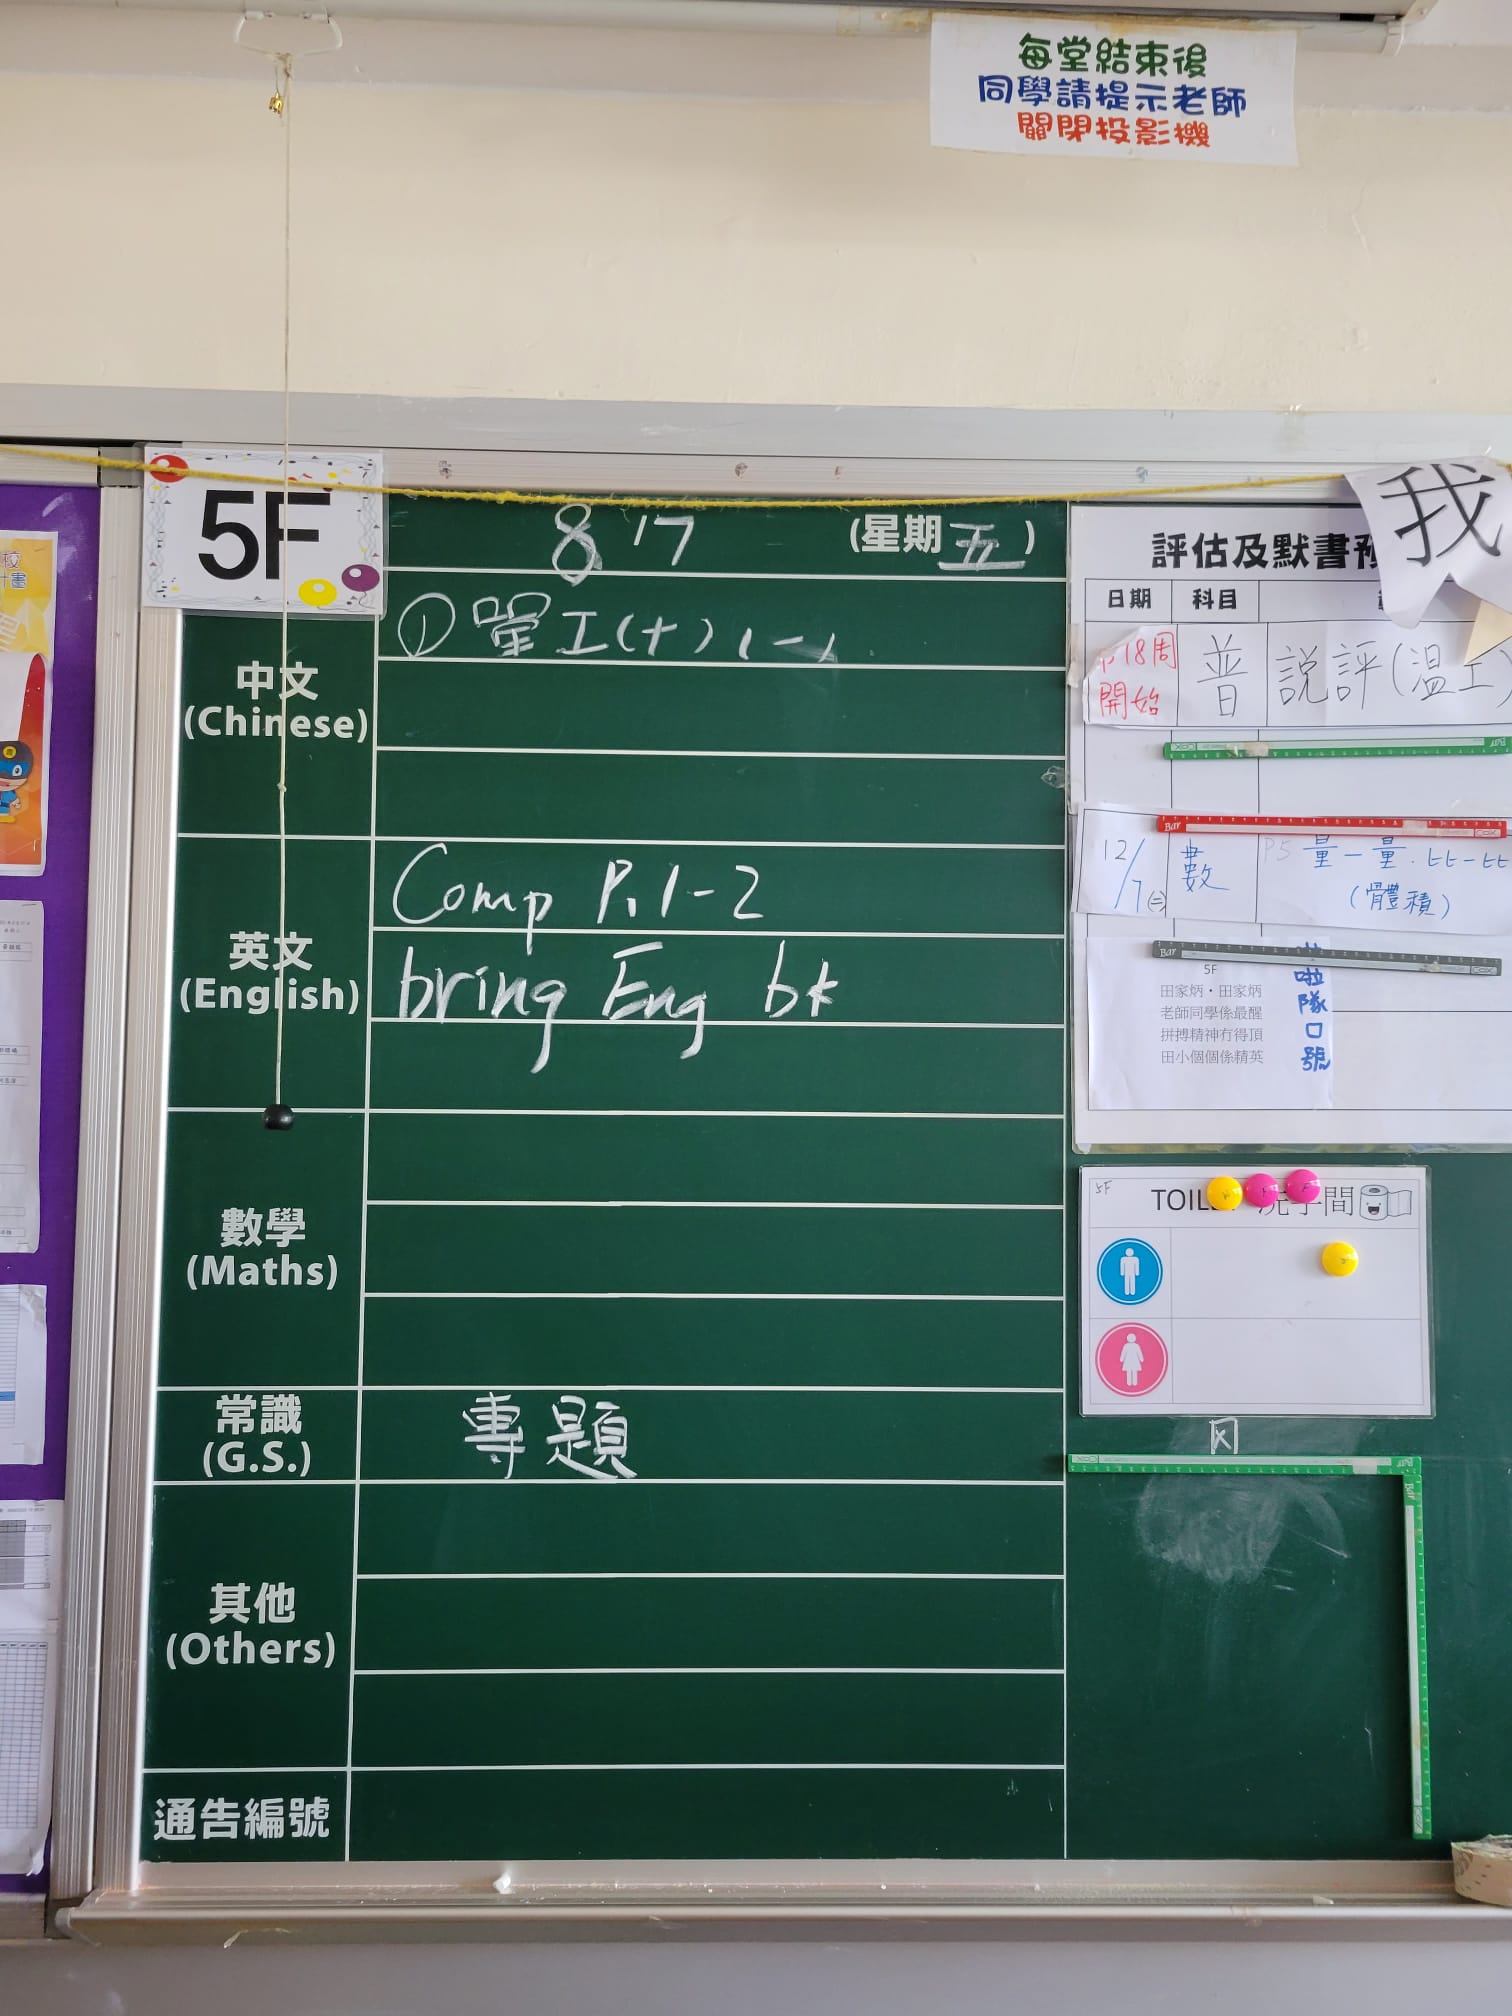 每堂結束後
同學請提示老師
關閉投影機
5F
8/7 (星期五)
中文
(Chinese)
① 單工(十)(一)
英文
(English)
Comp P.1-2
bring Eng bk
數學
(Maths)
常識
(G.S.)
專題
其他
(Others)
通告編號
我
評估及默書
日期 科目
18周
開始
普
說評(溫工)
12/7(二)
數
P5 量一量.比一比
(體積)
5F
田家炳・田家炳
老師同學係最醒
拼搏精神冇得頂
田小個個係精英
啦隊口號
5F
TOILET 洗手間